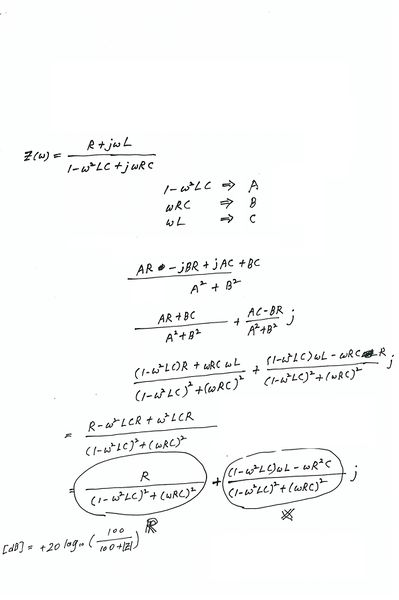 Z(ω) = R + jωL / 1-ω²LC + jωRC
1-ω²LC ⇒ A
ωRC ⇒ B
ωL ⇒ C
AR - jBR + jAC + BC / A² + B²
AR + BC / A² + B² + AC - BR / A² + B² j
(1-ω²LC)R + ωRC ωL / (1-ω²LC)² + (ωRC)² + (1-ω²LC)ωL - ωRC R / (1-ω²LC)² + (ωRC)² j
= R - ω²LCR + ω²LCR / (1-ω²LC)² + (ωRC)²
= R / (1-ω²LC)² + (ωRC)² + (1-ω²LC)ωL - ωR²C / (1-ω²LC)² + (ωRC)² j
R X
[dB] = +20 log₁₀ (100 / 100+|Z|)